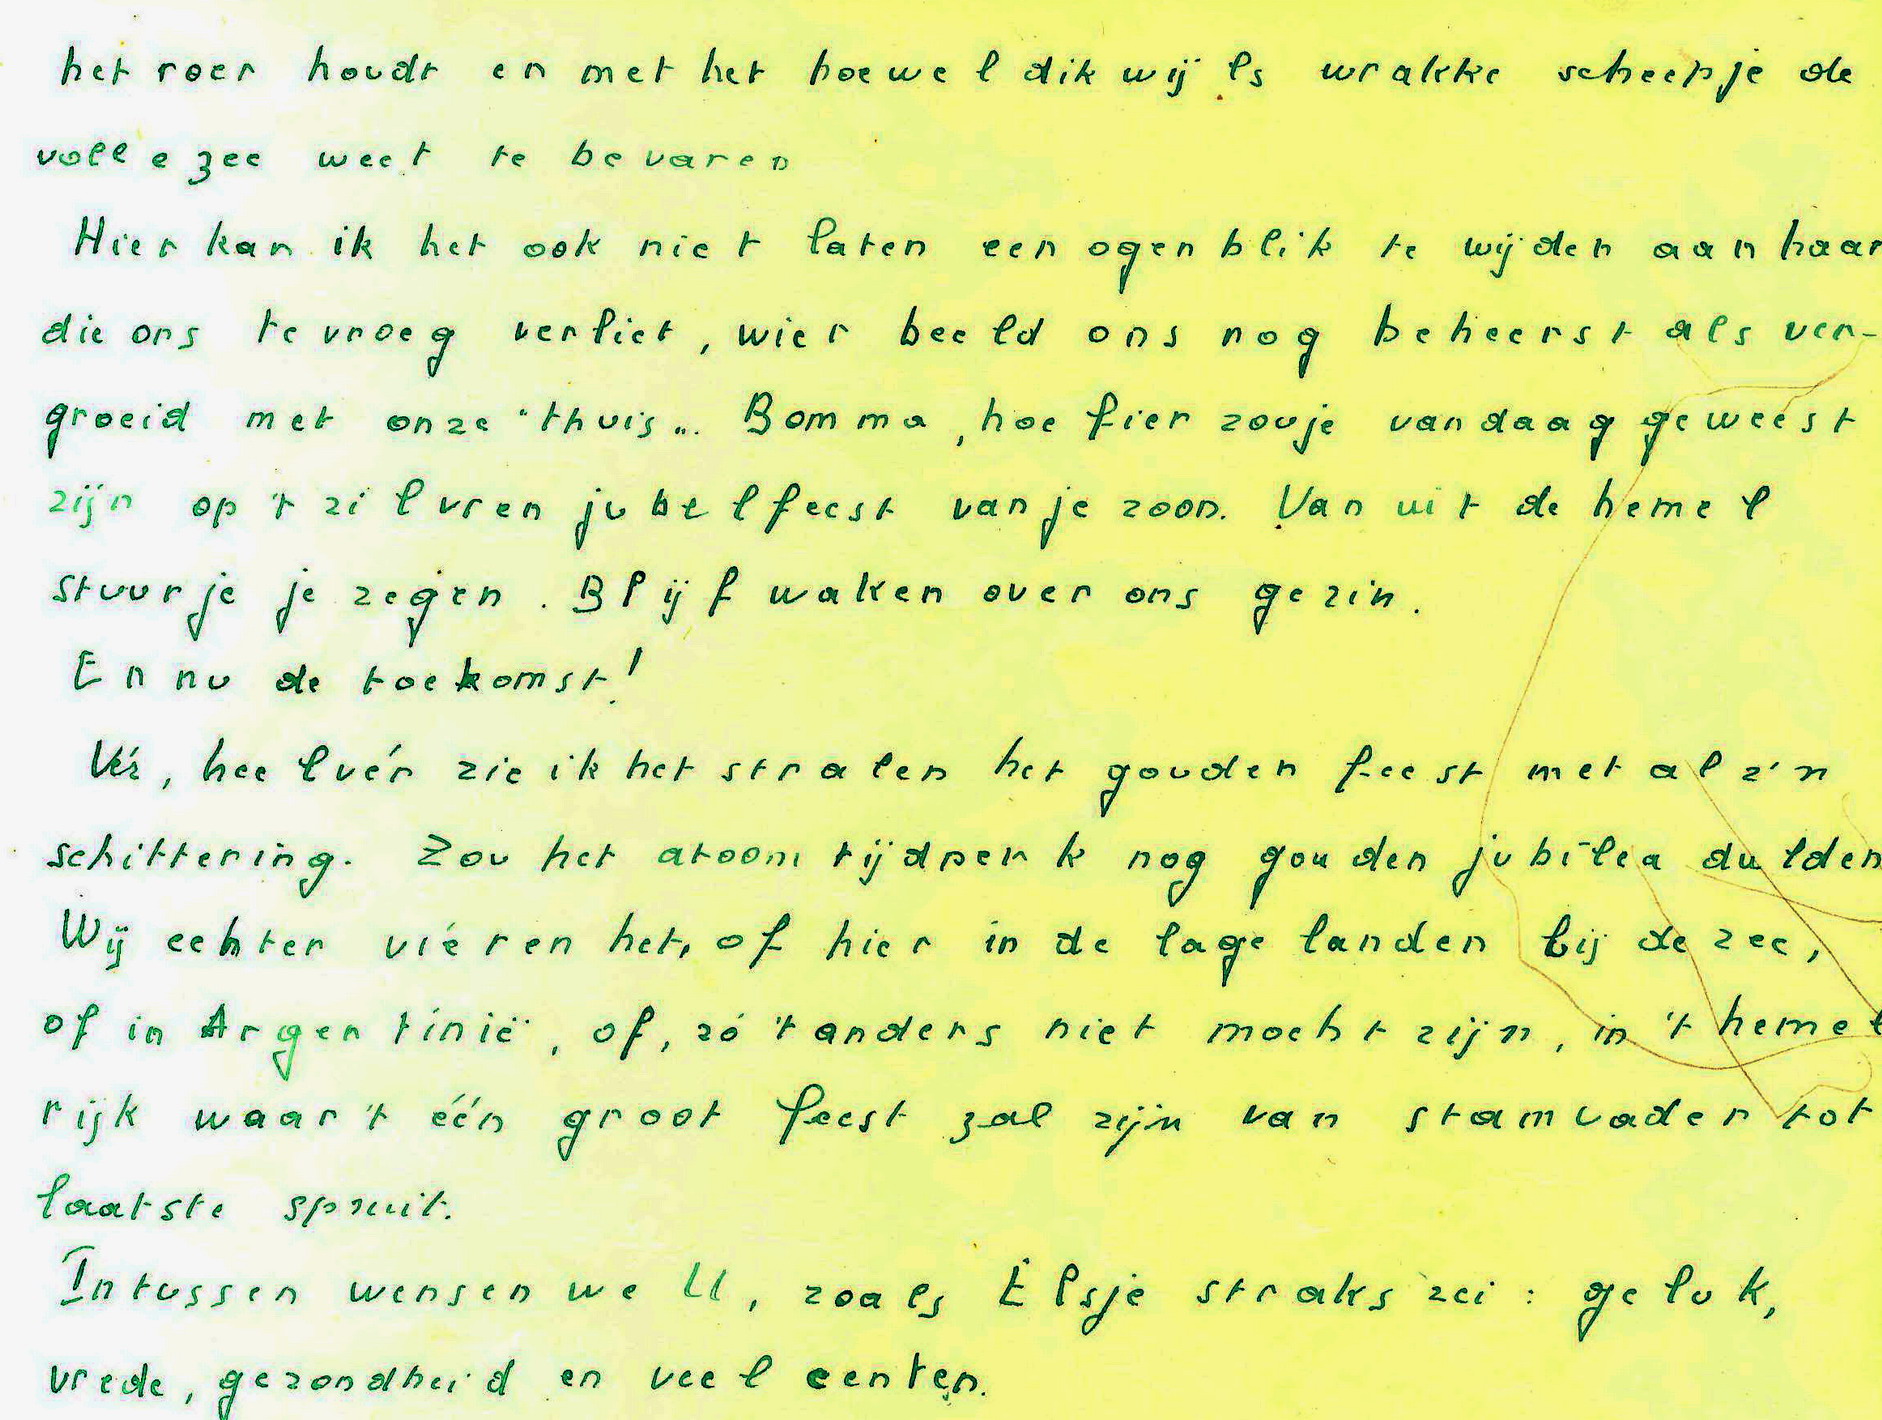 het roer houdt en met het hoewel dikwijls wrakke scheepje de
volle zee weet te bevaren
Hier kan ik het ook niet laten een ogenblik te wijden aan haar
die ons te vroeg verliet, wier beeld ons nog beheerst als ver-
groeid met onze "thuis".. Bomma, hoe fier zou je vandaag geweest
zijn op 't zilvren jubelfeest van je zoon. Van uit de hemel
stuur je je zegen. Blijf waken over ons gezin.
En nu de toekomst!
Vér, heel vér zie ik het stralen het gouden feest met al z'n
schittering. Zou het atoomtijdperk nog gouden jubilea dulden
Wij echter vieren het, of hier in de lage landen bij de zee,
of in Argentinië, of, zó 't anders niet mocht zijn, in 't hemel
rijk waar 't één groot feest zal zijn van stamvader tot
laatste spruit.
Intussen wensen we U, zoals Elsje straks zei: geluk,
vrede, gezondheid en veel centen.